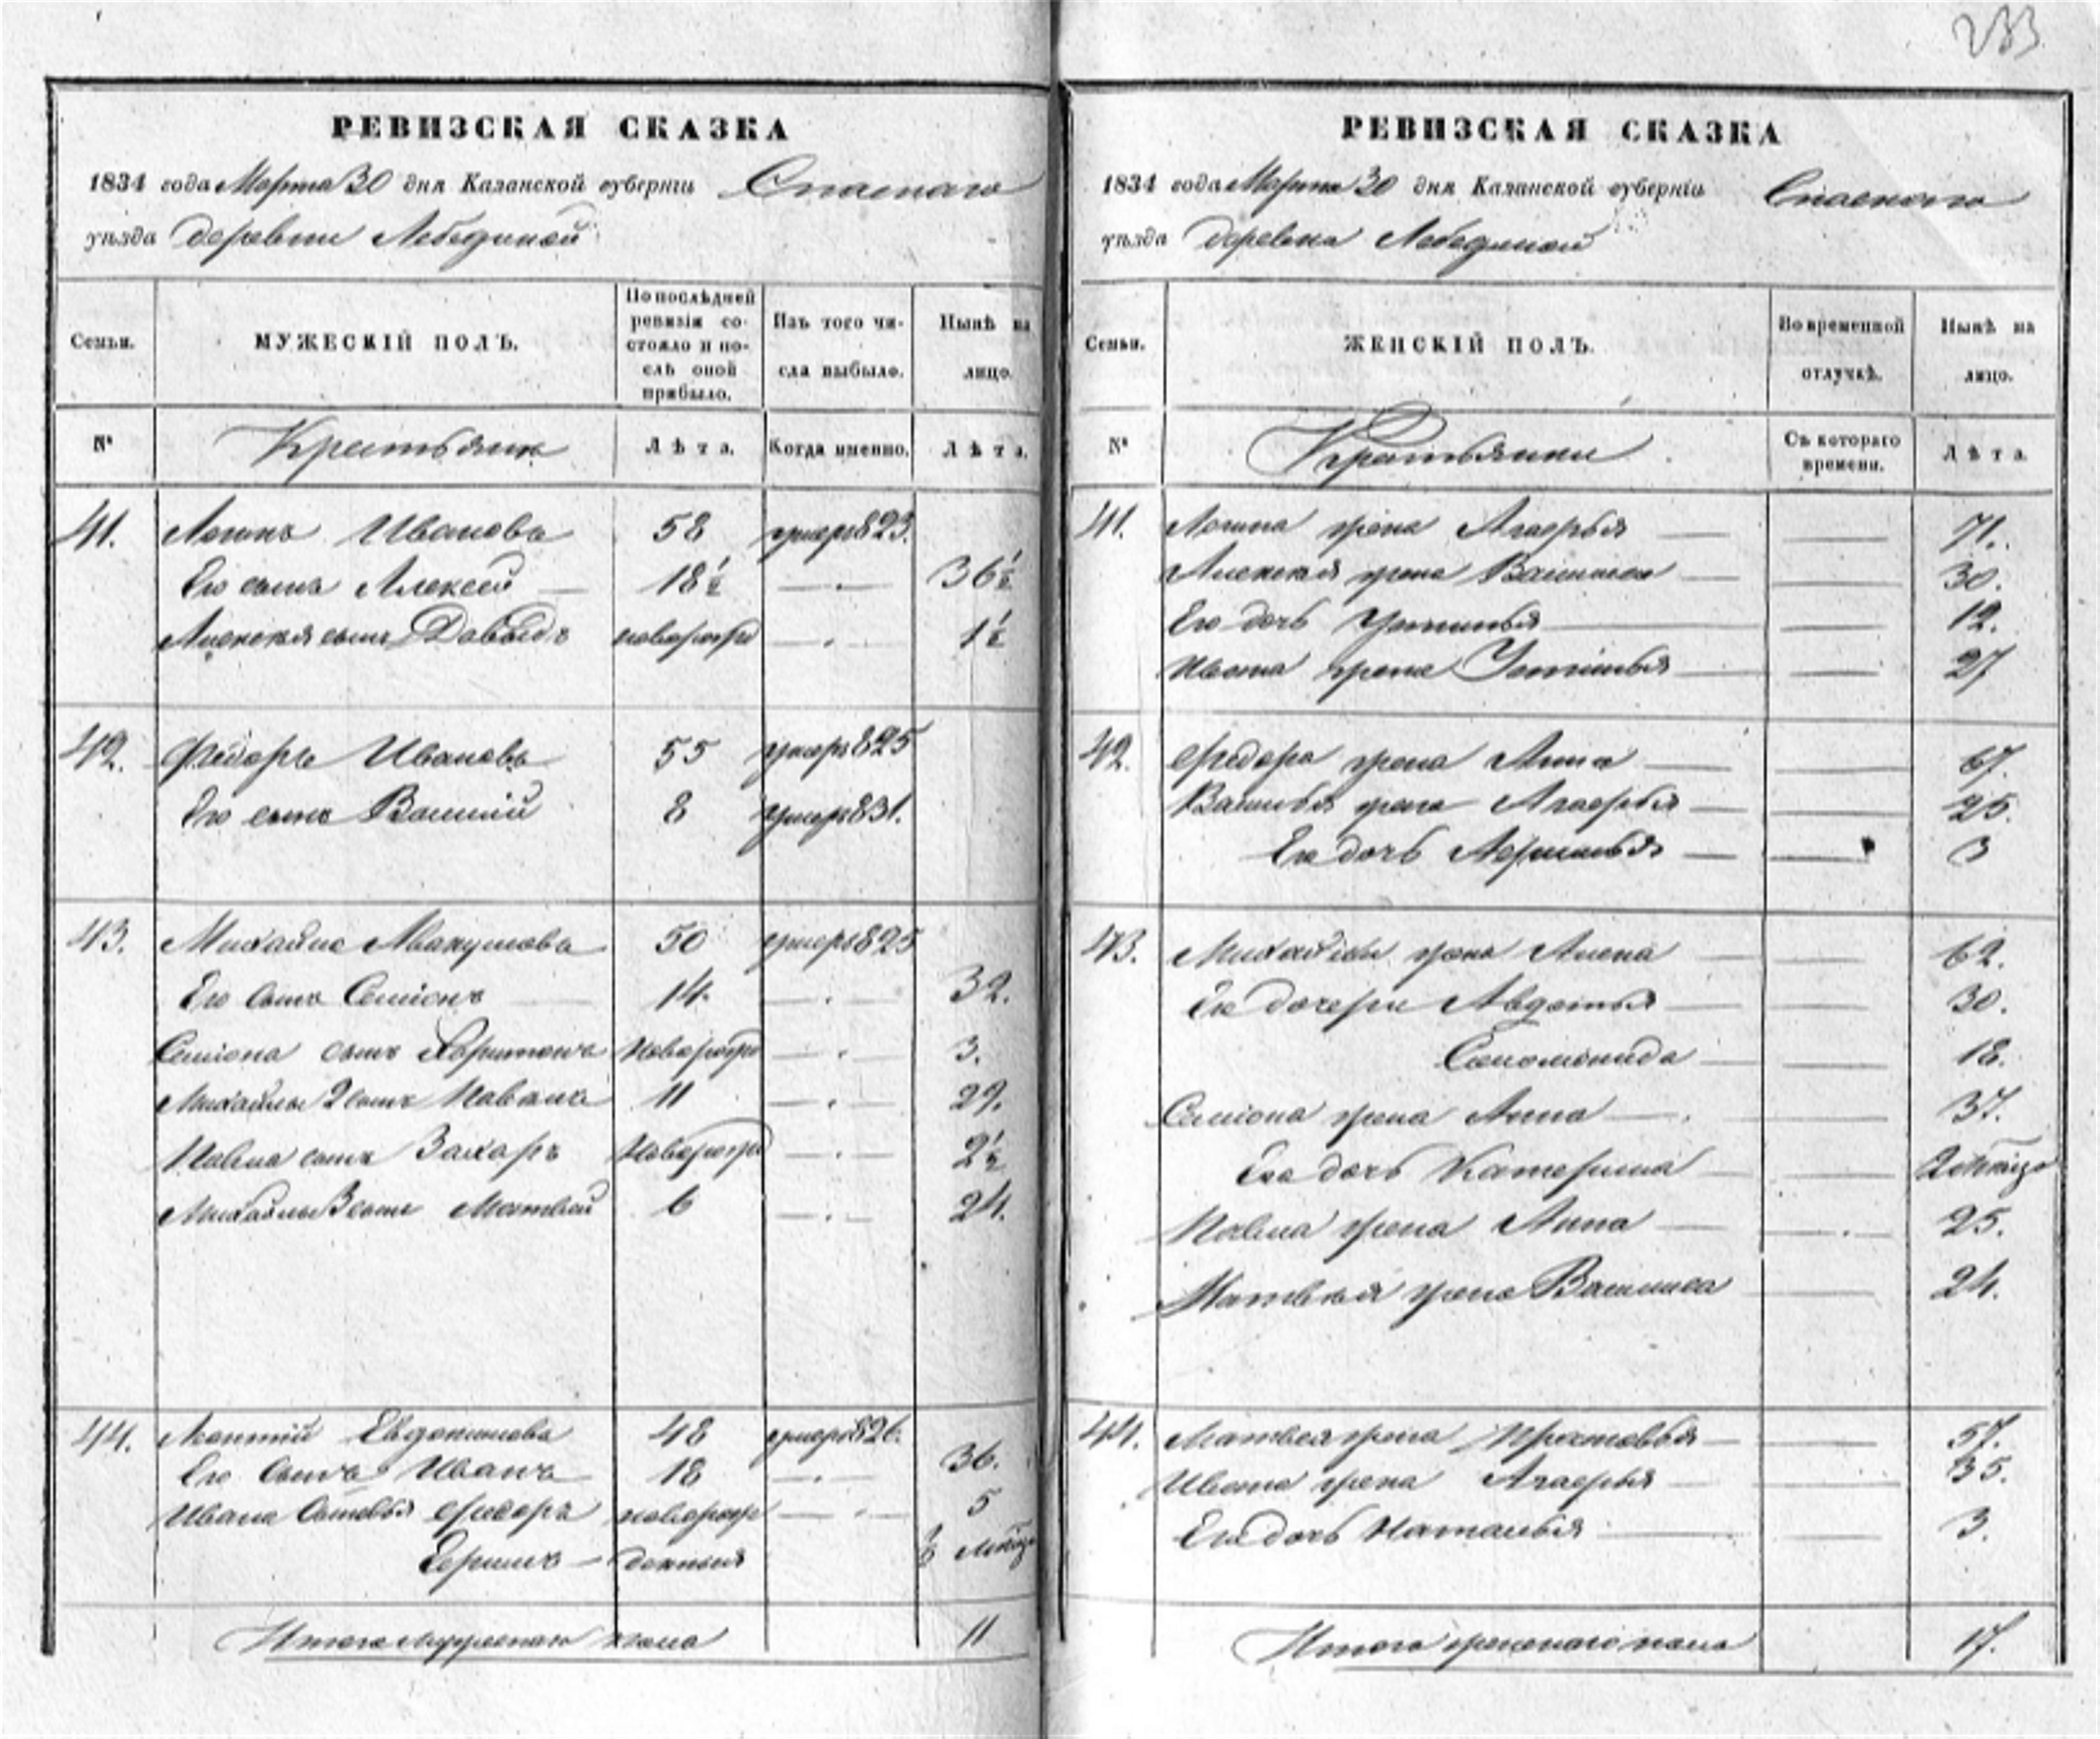 233
РЕВИЗСКАЯ СКАЗКА
1834 года Марта 30 дня Казанской губернiи Спаскаго
уѣзда деревни Лебединой
Семьи.
МУЖЕСКІЙ ПОЛЪ.
По послѣдней ревизіи состояло и послѣ оной прибыло.
Изъ того числа выбыло.
Нынѣ на лицо.
№
Крестьяне
Лѣта.
Когда именно.
Лѣта.
41. Логинъ Ивановъ 58 умеръ 823.
Его сынъ Алексей — 18½ — 36½
Алексея сынъ Давыдъ новорож — 1½
42. Федоръ Ивановъ 55 умеръ 825
Его сынъ Василий 8 умеръ 831.
43. Михайла Абакумовъ 50 умеръ 825
Его сынъ Семіонъ 14. — 32.
Семіона сынъ Харитонъ новорож — 3.
Михайлы 2 сынъ Павелъ 11 — 29.
Павла сынъ Захаръ новорож — 2½
Михайлы 3 сынъ Матвей 6 — 24.
44. Евдокимовъ 48 умеръ 826.
Его сынъ Иванъ 18 — 36.
Ивана сыновья Федоръ новорож — 5
— денныя
Итого мужеска пола 11
РЕВИЗСКАЯ СКАЗКА
1834 года Марта 30 дня Казанской губернiи Спаскаго
уѣзда деревни Лебединой
Семьи.
ЖЕНСКІЙ ПОЛЪ.
Во временной отлучкѣ.
Нынѣ на лицо.
№
Крестьянки
Съ котораго времени.
Лѣта
41. Логина жена Агаөья — — 71.
Алексея жена Василиса — — 30.
Его дочь Устинья — — 12.
Ивана жена Устинья — — 27
42. Федора жена Анна — — 67.
Василья жена Агаөья — — 25.
Ея дочь — — 3
43. Михайлы жена Алена — — 62.
Ея дочери Авдотья — — 30.
Соломонида — — 18.
Семіона жена Анна — — 37.
Его дочь Катерина — —
Павла жена Анна — — 25.
Матвея жена Василиса — 24.
44. жена Прасковья — — 57.
Ивана жена Агаөья — — 35.
Его дочь Наталья — — 3.
Итого женскаго пола 17.